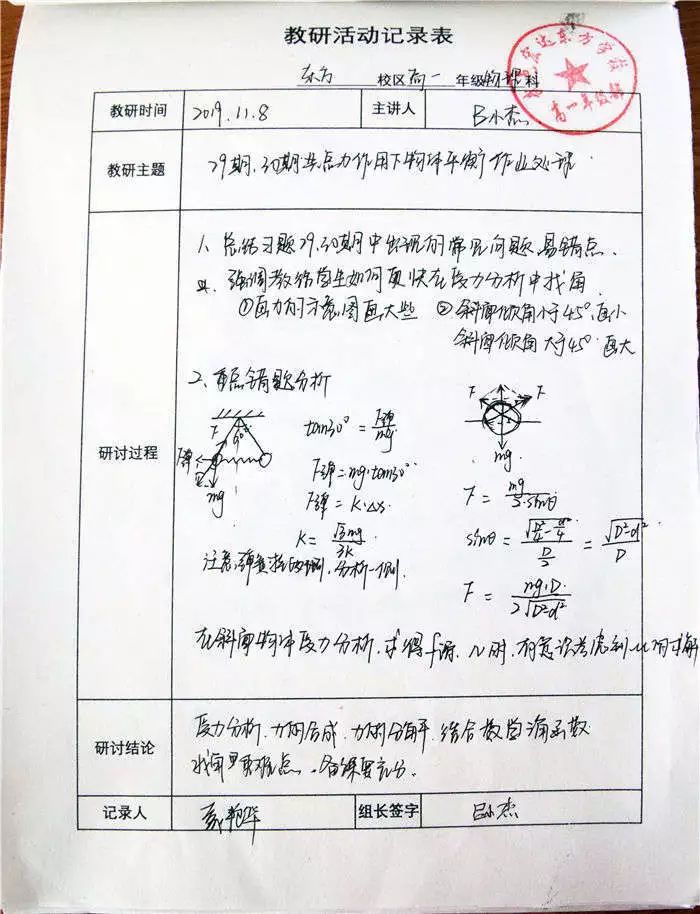 教研活动记录表
东方 校区 高一 年级 物理 科
教研时间 2019.11.8 主讲人 吕小杰
教研主题 29期、30期共点力作用下物体平衡 作业处理
研讨过程
1、总结习题29、30期中出现的常见问题 易错点.
强调教给学生如何更快在受力分析中找角
①画力的示意图画大些 ②斜面倾角小于45°画小
斜面倾角大于45°画大
2、重点错题分析
F 60° F弹 mg
tan30° = F弹/mg
F弹 = mg·tan30°
F弹 = K·Δx
K = √3mg/3K
注意弹簧 分析一侧.
F F mg
F = mg/2·sinθ
sinθ = √(D²/4 - d²/4)/(D/2) = √(D²-d²)/D
F = mg·D/2√(D²-d²)
在斜面物体受力分析.求得f滑、N时.有意识考虑到μ的求解
研讨结论
受力分析、力的合成、力的分解 结合数学三角函数
找角是难点.备课要充分.
记录人 组长签字 吕小杰
东方学校
高一年级部